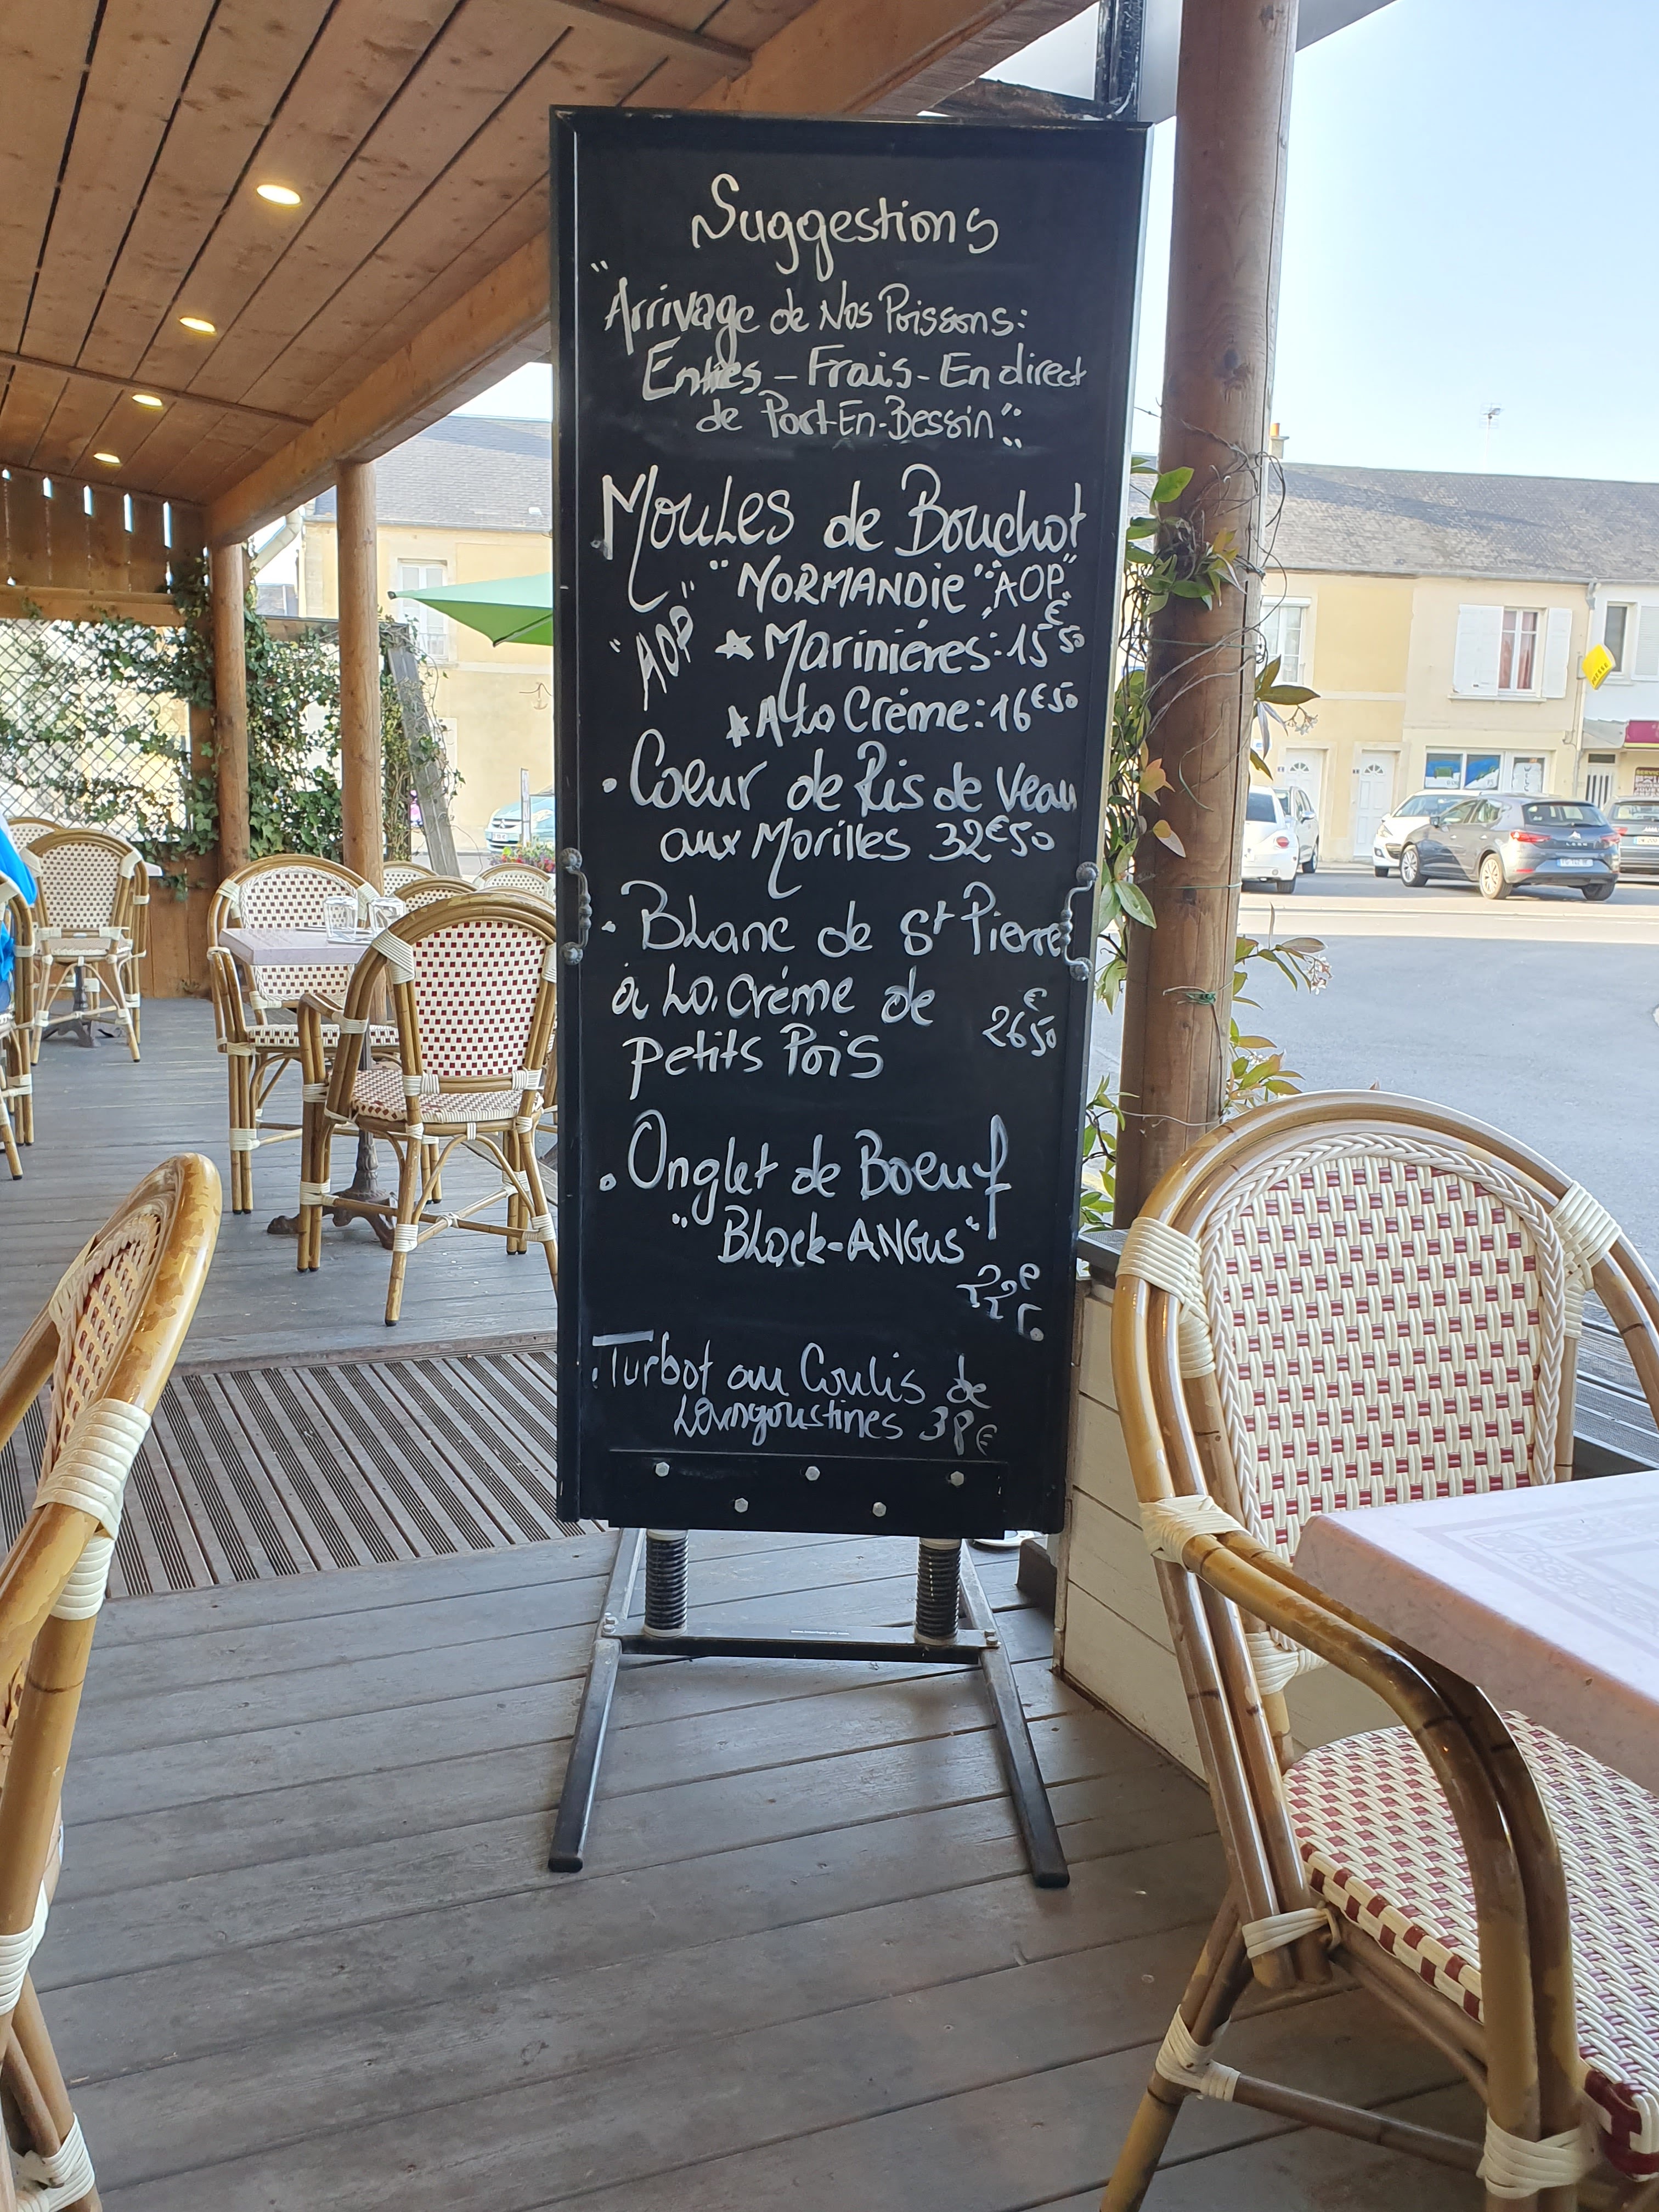 Suggestions
"Arrivage de Nos Poissons:
Entiès - Frais - En direct
de Port-En-Bessin":
Moules de Bouchot
"NORMANDIE" "AOP"
"AOP" ★ Marinières: 15€50
★ A La Crème: 16€50
• Coeur de Ris de Veau
aux Morilles 32€50
• Blanc de St Pierre
à La Crème de 26€50
petits Pois
• Onglet de Boeuf
"Black-ANGUS"
22€
• Turbot au Coulis de
Langoustines 38€